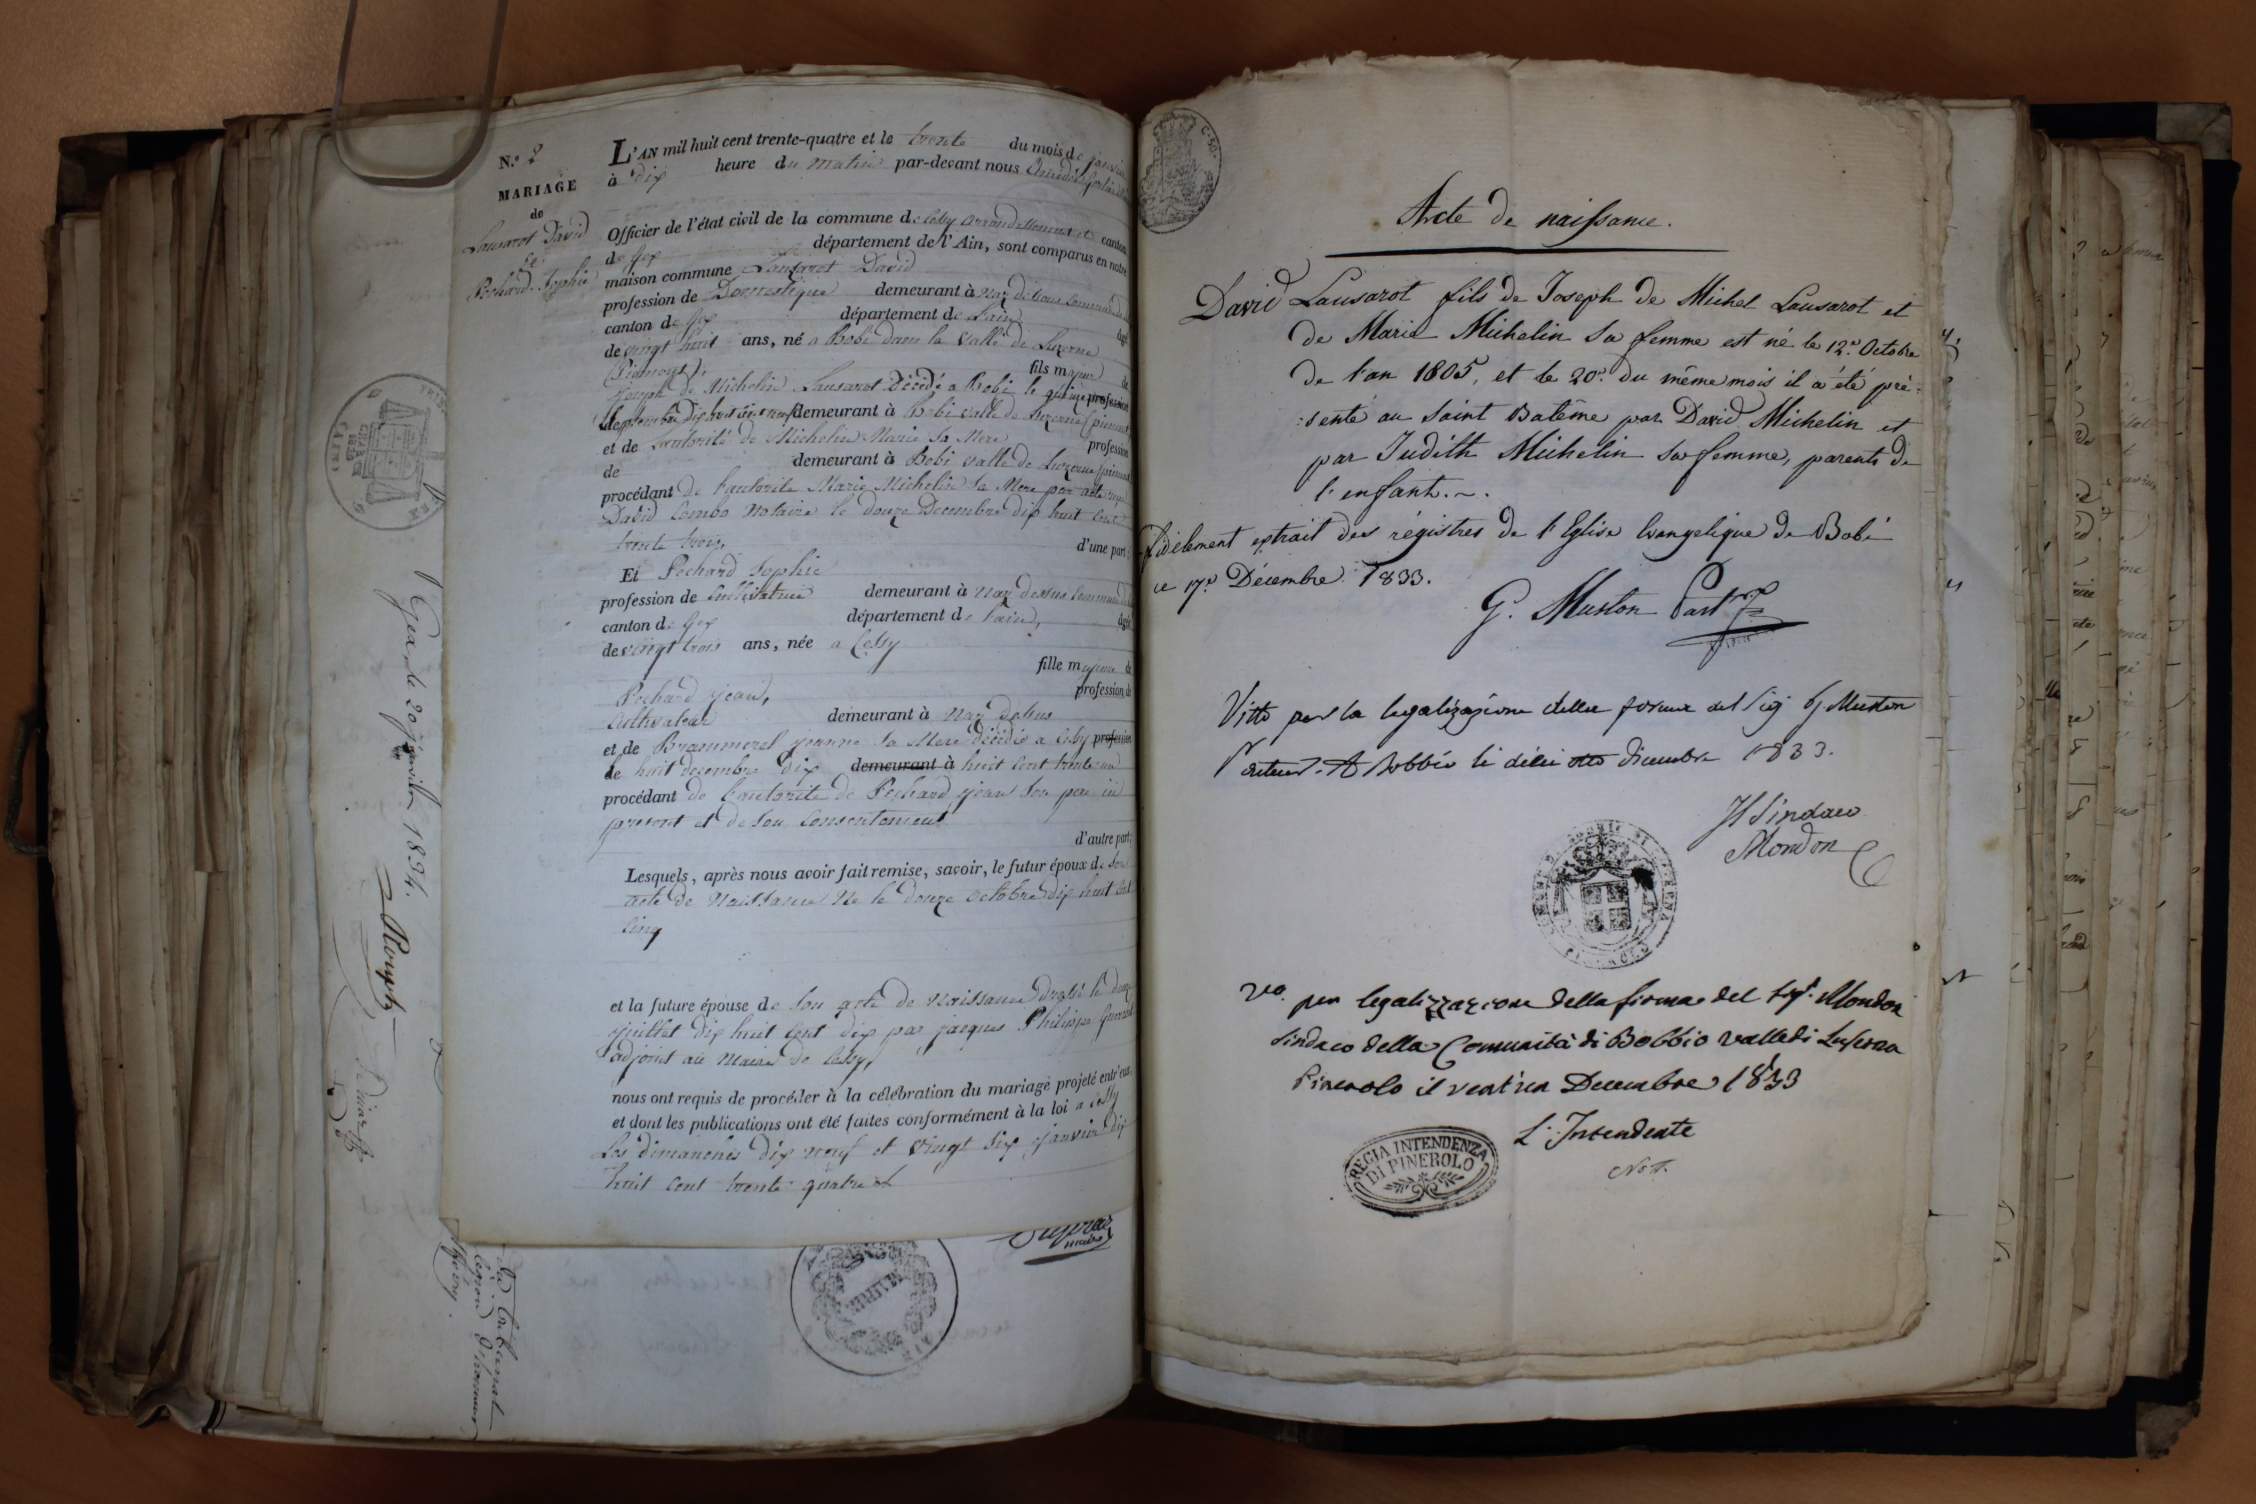 N.º 2
MARIAGE
de
Lausarot David
et
Pechard Sophie
L'AN mil huit cent trente-quatre et le trente du mois de janvier
à dix heure du matin par-devant nous
Officier de l'état civil de la commune de Cessy arrondissement et canton
de Gex département de l'Ain, sont comparus en notre
maison commune Lausarot David
profession de Domestique demeurant à Naz dessus commune de
canton de Gex département de l'ain âgé
de vingt huit ans, né a Bobi dans la vallé de Luzerne
(Piémont), fils majeur de
Joseph de Michelin Lausarot décédé a Bobi le quinze profession
septembre dix huit cent neuf demeurant à Bobi vallé de Luzerne (piemont
et de l'autorité de Michelin Marie sa Mere profession
de demeurant à Bobi vallé de Luzerne (piemont
procédant de l'autorité Marie Michelin sa Mere par acte reçu
David Combo Notaire le douze Decembre dix huit cent
trente trois, d'une part;
Et Pechard Sophie
profession de Cultivatrice demeurant à Naz dessus commune de
canton de Gex département de l'ain, âgée
de vingt trois ans, née a Cessy
fille majeure de
Pechard jean, profession de
Cultivateur demeurant à Naz dessus
et de Brammerel jeanne sa Mere décédée a Cessy profession
le huit decembre dix demeurant à huit cent trente un
procédant de l'autorité de Pechard jean son pere ici
present et de son Consentement
d'autre part;
Lesquels, après nous avoir fait remise, savoir, le futur époux de son
acte de Naissance Né le douze octobre dix huit cent
cinq
et la future épouse de son acte de Naissance dressé le douze
juillet dix huit cent dix par jacques Philippe
adjoint au Maire de Cessy,
nous ont requis de procéder à la célébration du mariage projeté entr'eux
et dont les publications ont été faites conformément à la loi a Cessy
Les dimanches dix neuf et vingt six janvier dix
huit cent trente quatre
Gex le 20 janvier 1834.
Rouph
maire
MAIRIE
Acte de naissance.
David Lausarot fils de Joseph de Michel Lausarot et
de Marie Michelin sa femme est né le 12.e Octobre
de l'an 1805, et le 20.e du même mois il a été pré-
:senté au Saint Batême par David Michelin et
par Judith Michelin sa femme, parents de
l'enfant.~.
Fidèlement extrait des régistres de l'Eglise Evangelique de Bobi
ce 17.e Décembre 1833.
G. Muston Past.r
Visto per la legalizazione della firma del Sig G Muston
A Bobbio li dicie otto Dicembre 1833.
Il Sindaco
Mondon
V.o per legalizzazione della firma del Sig.r Mondon
Sindaco della Comunità di Bobbio valle di Luserna
Pinerolo il vent'un Decembre 1833
L'Intendente
REGIA INTENDENZA
DI PINEROLO